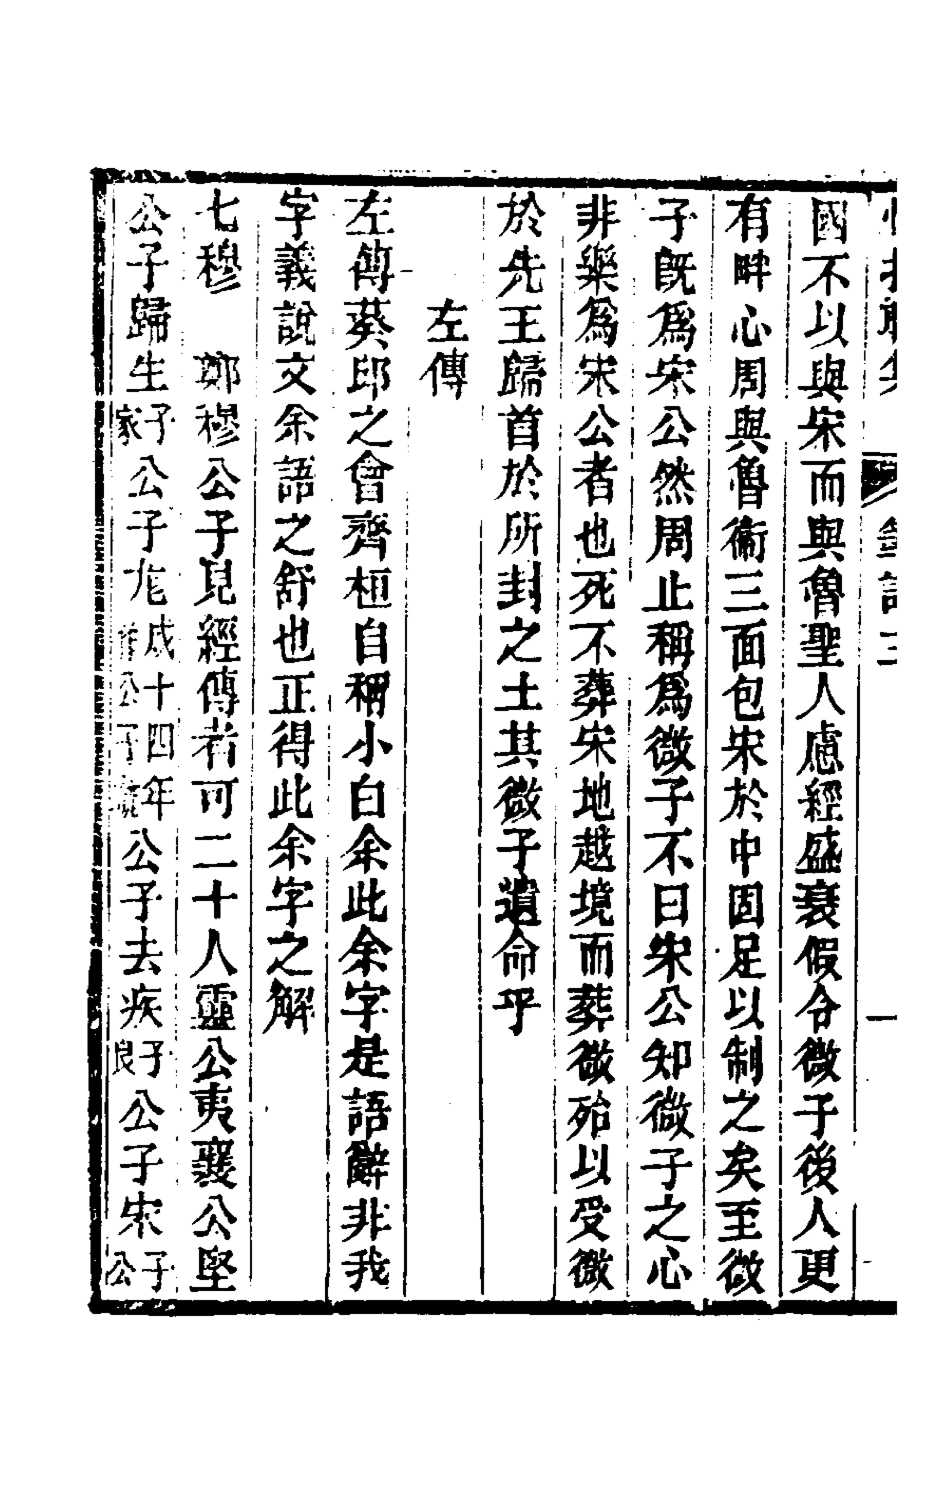 國不以與宋而與魯聖人慮經盛衰假令微子後人更
有畔心周與魯衞三面包宋於中固足以制之矣至微
子旣爲宋公然周止稱爲微子不曰宋公知微子之心
非樂爲宋公者也死不葬宋地越境而葬微殆以受微
於先王歸首於所封之土其微子遺命乎
左傳
左傳葵邱之會齊桓自稱小白余此余字是語辭非我
字義說文余語之舒也正得此余字之解
七穆　鄭穆公子見經傳者可二十人靈公夷襄公堅
公子歸生子家公子尨成十四年公子去疾子良公子宋子公